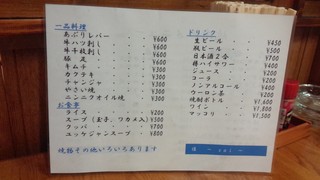 一品料理
あぶりレバー ・ ・ ¥600
牛ハツ刺し ・ ・ ¥600
牛千枚刺し ・ ・ ¥600
豚足 ・ ・ ¥600
キムチ ・ ・ ¥300
カクテキ ・ ・ ¥300
チャンジャ ・ ・ ¥300
やさい焼 ・ ・ ¥300
ニンニクオイル焼 ・ ¥300
お食事
ライス ・ ・ ¥200
スープ(玉子、ワカメ入) ¥300
クッパ ・ ・ ¥700
ユッケジャンスープ ・ ¥800
焼豚その他いろいろあります
ドリンク
生ビール ・ ・ ¥450
瓶ビール ・ ・ ¥500
日本酒2合 ・ ・ ¥700
酎ハイサワー ・ ・ ¥400
ジュース ・ ・ ¥200
コーラ ・ ・ ¥200
ノンアルコール ・ ¥400
ウーロン茶 ・ ・ ¥200
焼酎ボトル ・ ・ ¥1,600
ワイン ・ ・ ¥1,800
マッコリ ・ ・ ¥1,300